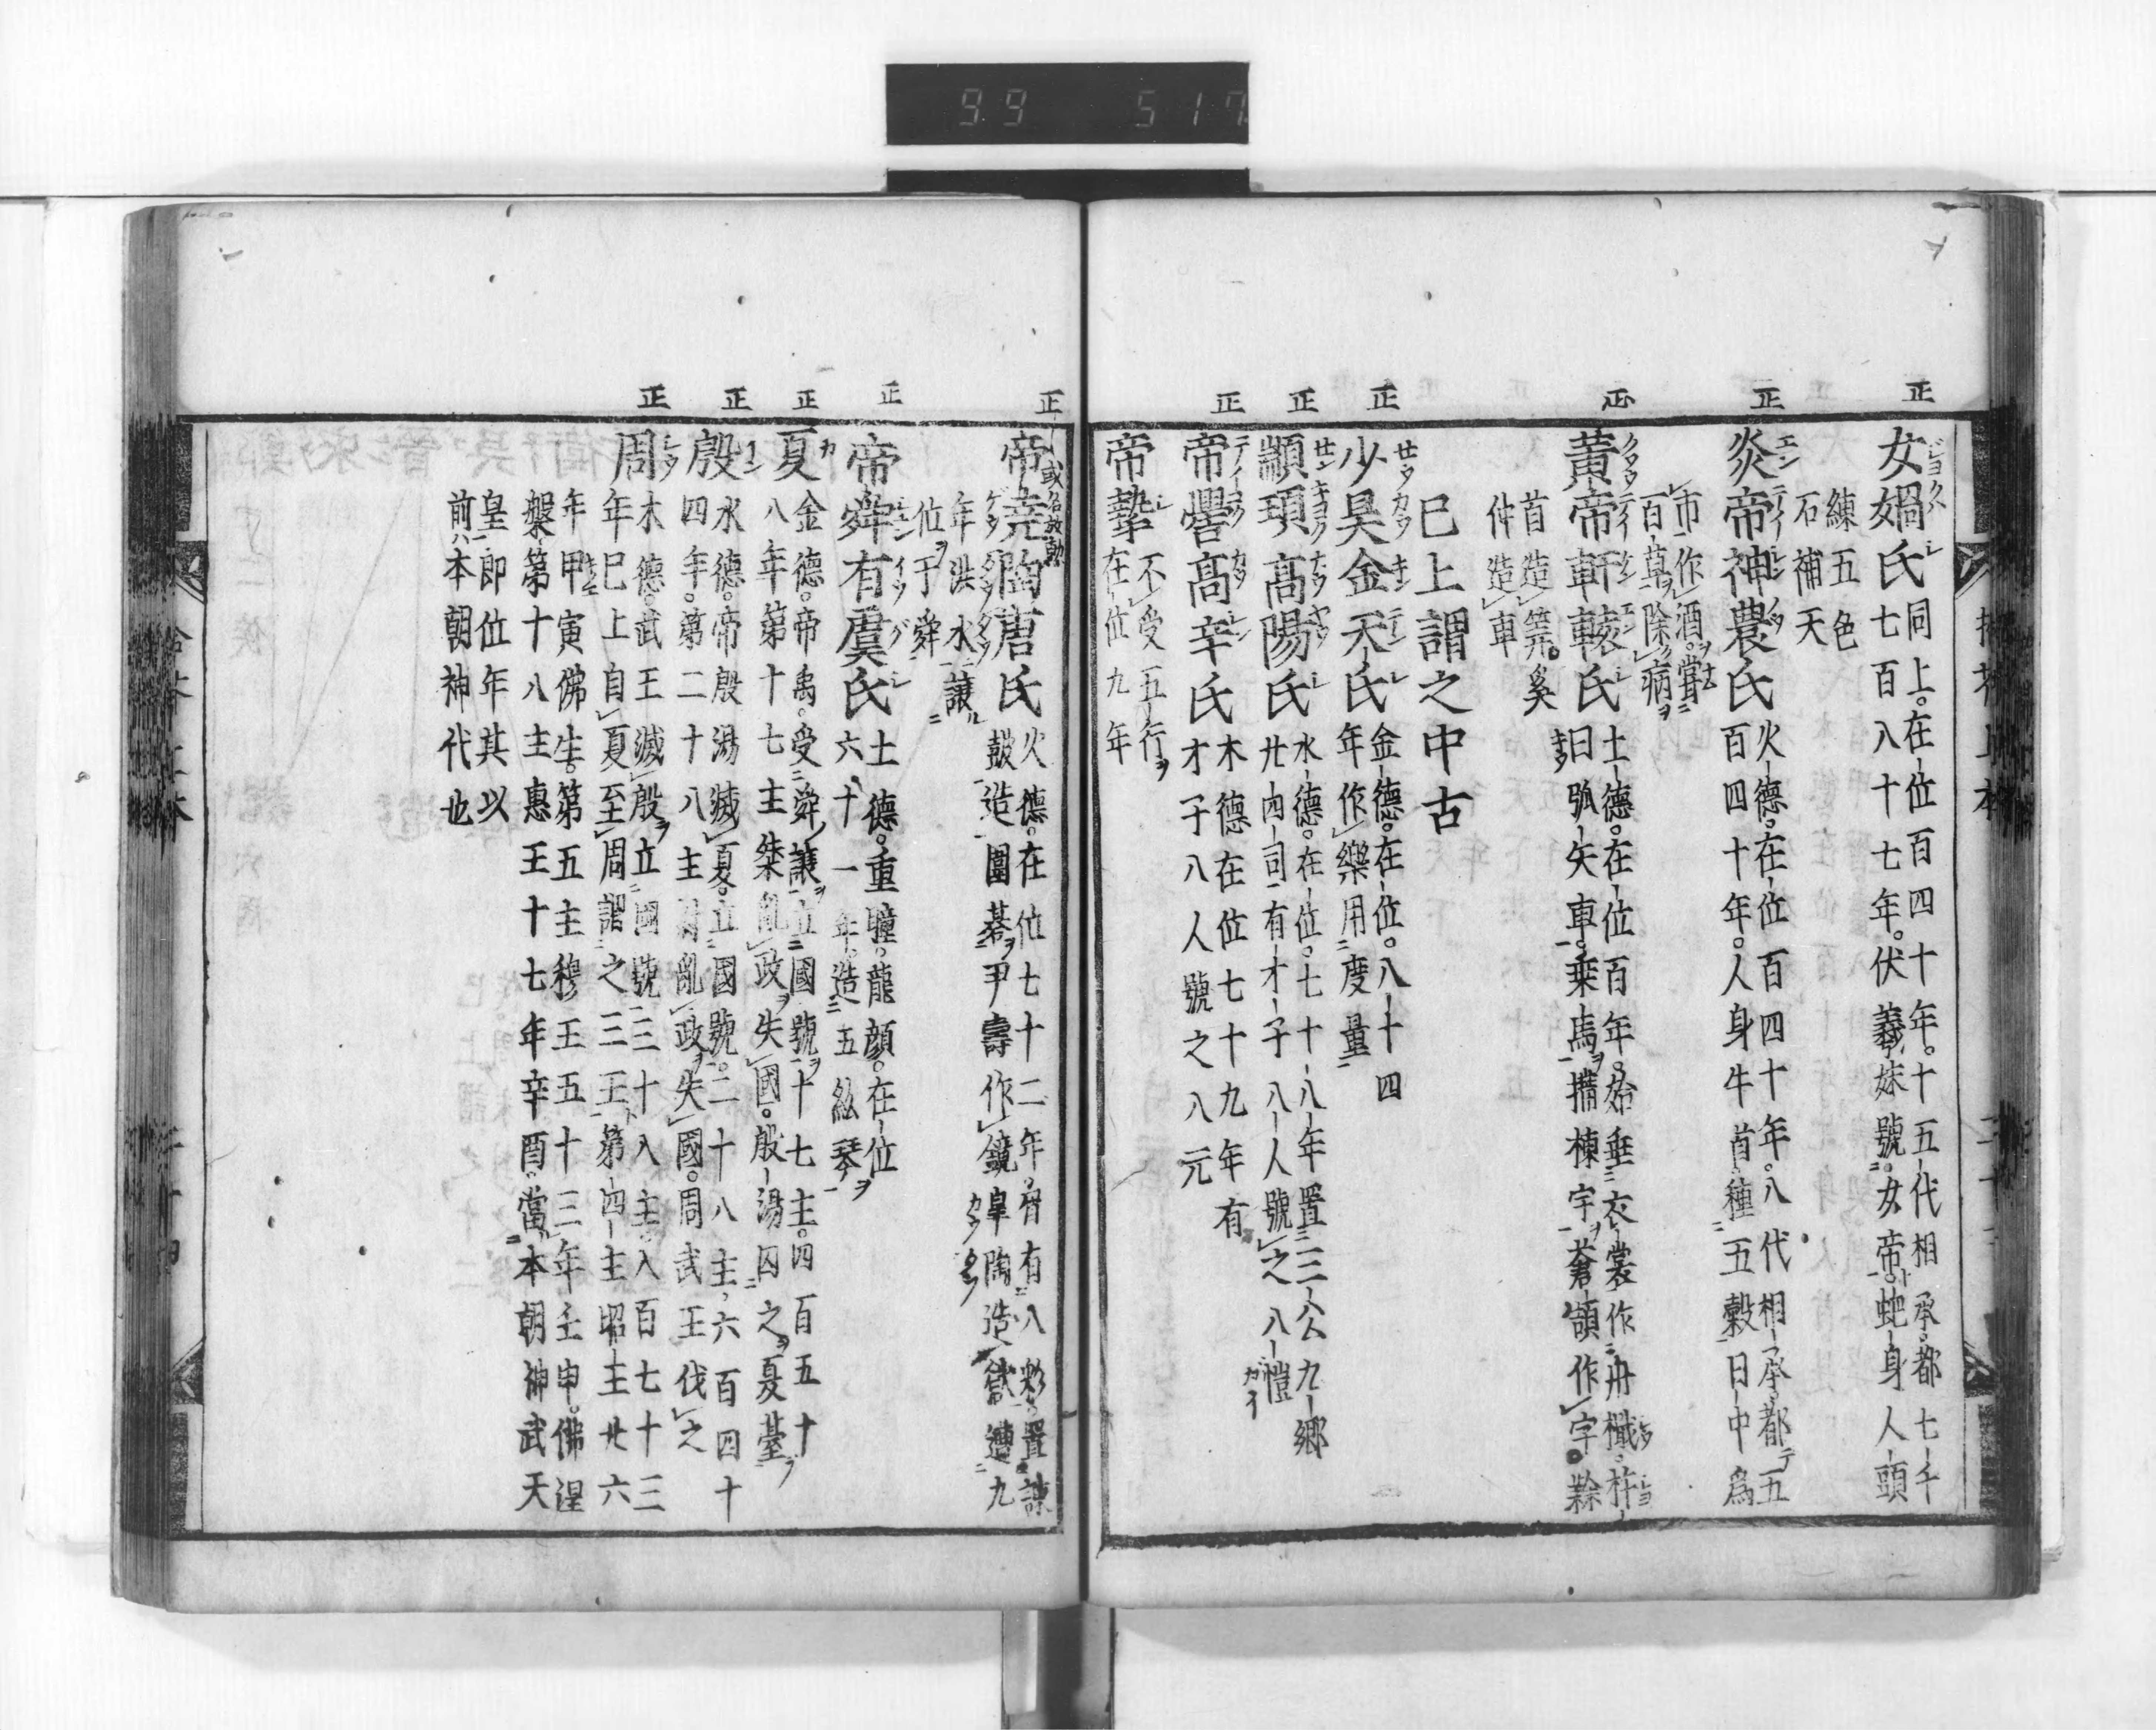 99 517
正
女媧氏
同上。在位百四十年。十五代相承。都七千
七百八十七年。伏羲妹號。女帝。蛇身人頭
練五色
石補天
正
炎帝神農氏
火德。在位百四十年。八代相承。都五
百四十年。人身牛首種五穀日中爲
市作酒。嘗
百草除病
正
黃帝軒轅氏
土德。在位百年。始垂衣裳作舟檝。杵
曰弧矢車。乗馬搆棟宇蒼頡作字。
首造筭。奚
仲造車
已上謂之中古
正
少昊金天氏
金德。在位。八十四
年作樂用度量
正
顓頊髙陽氏
水德。在位。七十八年置三公九郷
廿四司有才子八人號之八愷
正
帝嚳髙辛氏
木德在位七十九年有
才子八人號之八元
帝摯
不受五行
在位九年
正
帝堯陶唐氏
或名放勳
火德。在位七十二年。眉有八彩。置諫
鼓造圍碁尹壽作鏡皐陶造獄遭九
年洪水讓
位于舜
正
帝舜有虞氏
土德。重瞳。龍顔。在位
六十一年。造五絃琴
正
夏
金德。帝禹。受舜讓立國號十七主。四百五十
八年第十七主桀亂政失國。殷湯囚之夏臺
正
殷
水德。帝殷湯滅夏。立國號。二十八主六百四十
四年。第二十八主紂亂政失國。周武王伐之
正
周
木德。武王滅殷立國號三十八主。八百七十三
年巳上自夏至周謂之三王第四主昭王廿六
年甲寅佛生。第五主穆王五十三年壬申。佛涅
槃第十八主惠王十七年辛酉。當本朝神武天
皇即位年其以
前本朝神代也